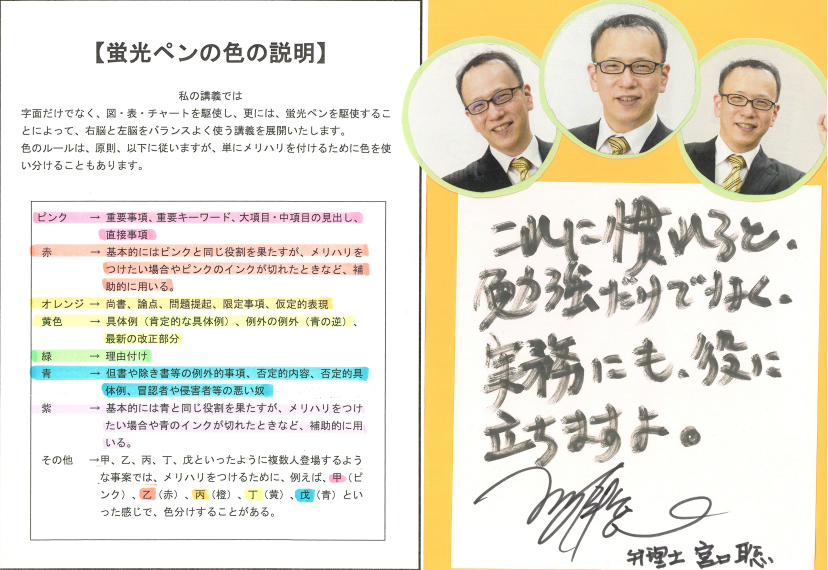 【蛍光ペンの色の説明】
私の講義では
字面だけでなく、図・表・チャートを駆使し、更には、蛍光ペンを駆使するこ
とによって、右脳と左脳をバランスよく使う講義を展開いたします。
色のルールは、原則、以下に従いますが、単にメリハリを付けるために色を使
い分けることもあります。
ピンク → 重要事項、重要キーワード、大項目・中項目の見出し、
直接事項
赤 → 基本的にはピンクと同じ役割を果たすが、メリハリを
つけたい場合やピンクのインクが切れたときなど、補
助的に用いる。
オレンジ → 尚書、論点、問題提起、限定事項、仮定的表現
黄色 → 具体例（肯定的な具体例）、例外の例外（青の逆）、
最新の改正部分
緑 → 理由付け
青 → 但書や除き書等の例外的事項、否定的内容、否定的具
体例、冒認者や侵害者等の悪い奴
紫 → 基本的には青と同じ役割を果たすが、メリハリをつけ
たい場合や青のインクが切れたときなど、補助的に用
いる。
その他 →甲、乙、丙、丁、戊といったように複数人登場するよう
な事案では、メリハリをつけるために、例えば、甲（ピ
ンク）、乙（赤）、丙（橙）、丁（黄）、戊（青）とい
った感じで、色分けすることがある。
これに慣れると、
勉強だけでなく、
実務にも、役に
立ちますよ。
弁理士 宮口聡